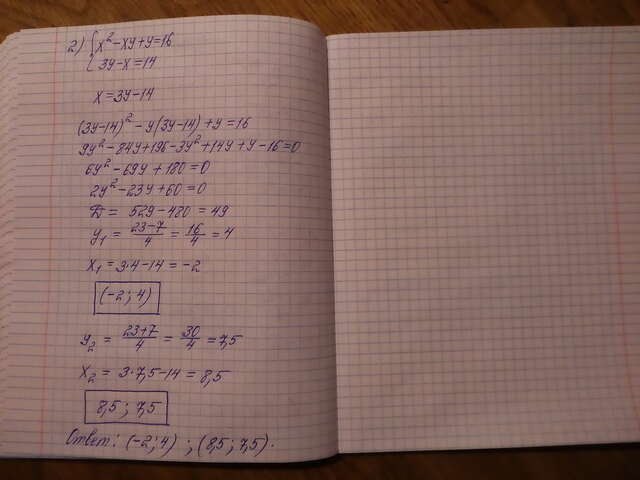 2) { x² - xy + y = 16
3y - x = 14
x = 3y - 14
(3y - 14)² - y(3y - 14) + y = 16
9y² - 84y + 196 - 3y² + 14y + y - 16 = 0
6y² - 69y + 180 = 0
2y² - 23y + 60 = 0
D = 529 - 480 = 49
y₁ = (23 - 7)/4 = 16/4 = 4
x₁ = 3·4 - 14 = -2
(-2; 4)
y₂ = (23 + 7)/4 = 30/4 = 7,5
x₂ = 3·7,5 - 14 = 8,5
8,5 ; 7,5
Ответ: (-2; 4) ; (8,5; 7,5).